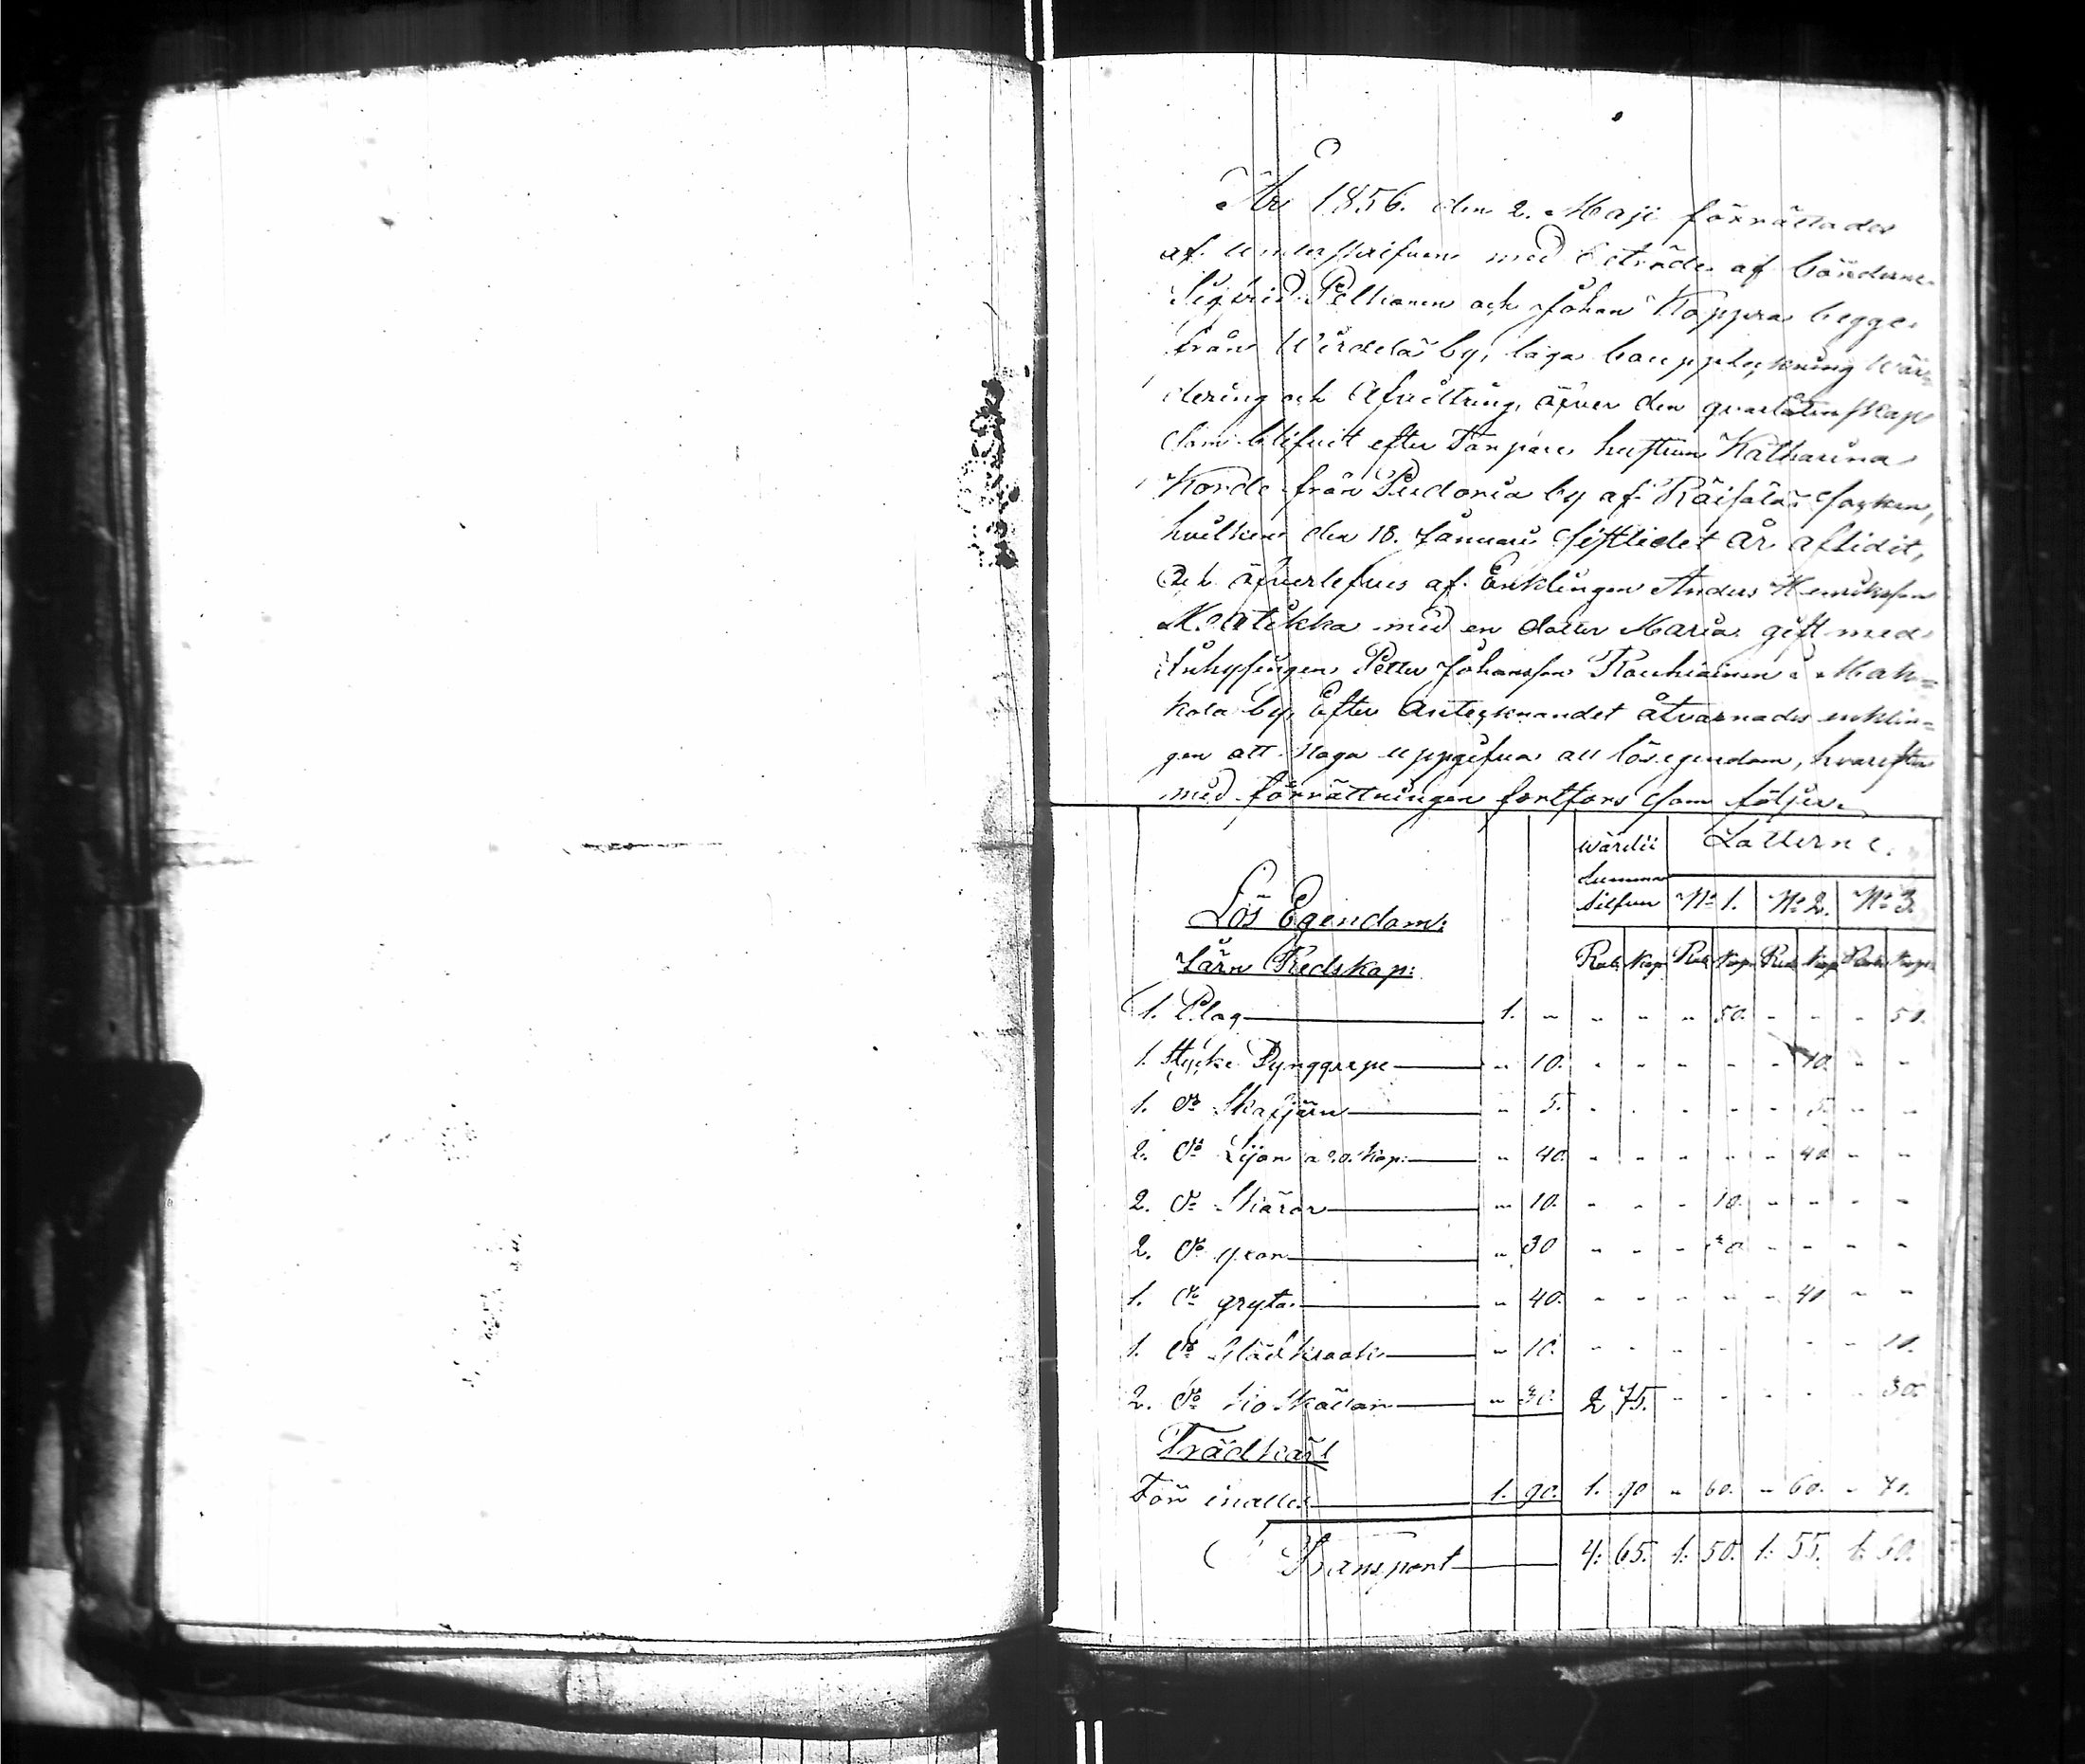 År 1856. den 2. Maji förrättades
af undertecknad med biträde af bönderne
Sigfrid Peltonen och Johan Koppra begge
från Wirdelä by, laga bouppteckning wär-
dering och Afwittring, öfver den qvarlåtenskap
som blifvit efter hustrun Katharina
Korde från Pudoria by af Räisälä Socken,
hvilken den 18. Januari sistledet år aflidit,
och öfverlefves af Enklingen Anders Henriksson
med en dotter Maria gift med
Inhysingen Petter Johansson Rauhiainen i Mak-
kola by, Efter Antecknandet åtvarnades enklin-
gen att noga uppgifva all lösegendom, hvarefter
med förrättningen fortfors som följer.
wärde Summa Silfver Lotterne.
N:o 1. N:o 2. N:o 3.
Lös Egendom:
Järn Redskap: Rub. Kop. Rub. Kop. Rub. Kop. Rub. Kop.
1. Plog 1. - - - - 50. - - - 50.
1. Stycke Dynggrepe - 10. - - - - - 10. - -
1. d:o Skafjärn - 5. - - - - - 5. - -
2. d:o Lijor a 20. Kop: - 40. - - - - - 40 - -
2. d:o Skäror - 10. - - - 10. - - - -
2. d:o yxor - 30 - - - 30 - - - -
1. d:o gryta - 40. - - - - - 40 - -
1. d:o - 10. - - - - - - - 10.
2. d:o - 30. 2 75. - - - - - 30.
Trädkäril
För inalles 1. 90. 1. 90 - 60. - 60. - 70.
Transport 4. 65. 1. 50. 1. 55. 1. 60.